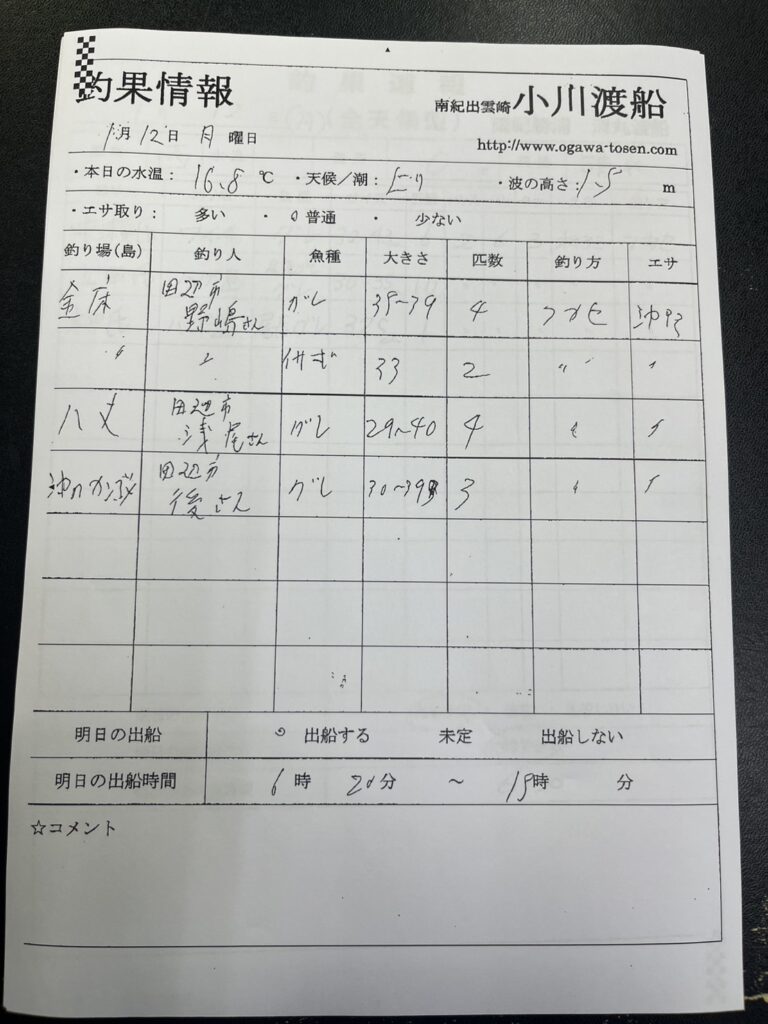 釣果情報
南紀出雲崎 小川渡船
1月12日 月 曜日
http://www.ogawa-tosen.com
・本日の水温： 16.8 ℃ ・天候／潮： ・波の高さ：1.5 m
・エサ取り： 多い ・ 普通 ・ 少ない
釣り場(島) 釣り人 魚種 大きさ 匹数 釣り方 エサ
金床 田辺市 野嶋さん グレ 35~39 4 フカセ
〃 〃 イサギ 33 2 〃 〃
八丈 田辺市 浅尾さん グレ 29~40 4 〃 〃
沖のかぶり 田辺市 後さん グレ 30~39 3 〃 〃
明日の出船 出船する 未定 出船しない
明日の出船時間 6時 20分 ～ 15時 分
☆コメント